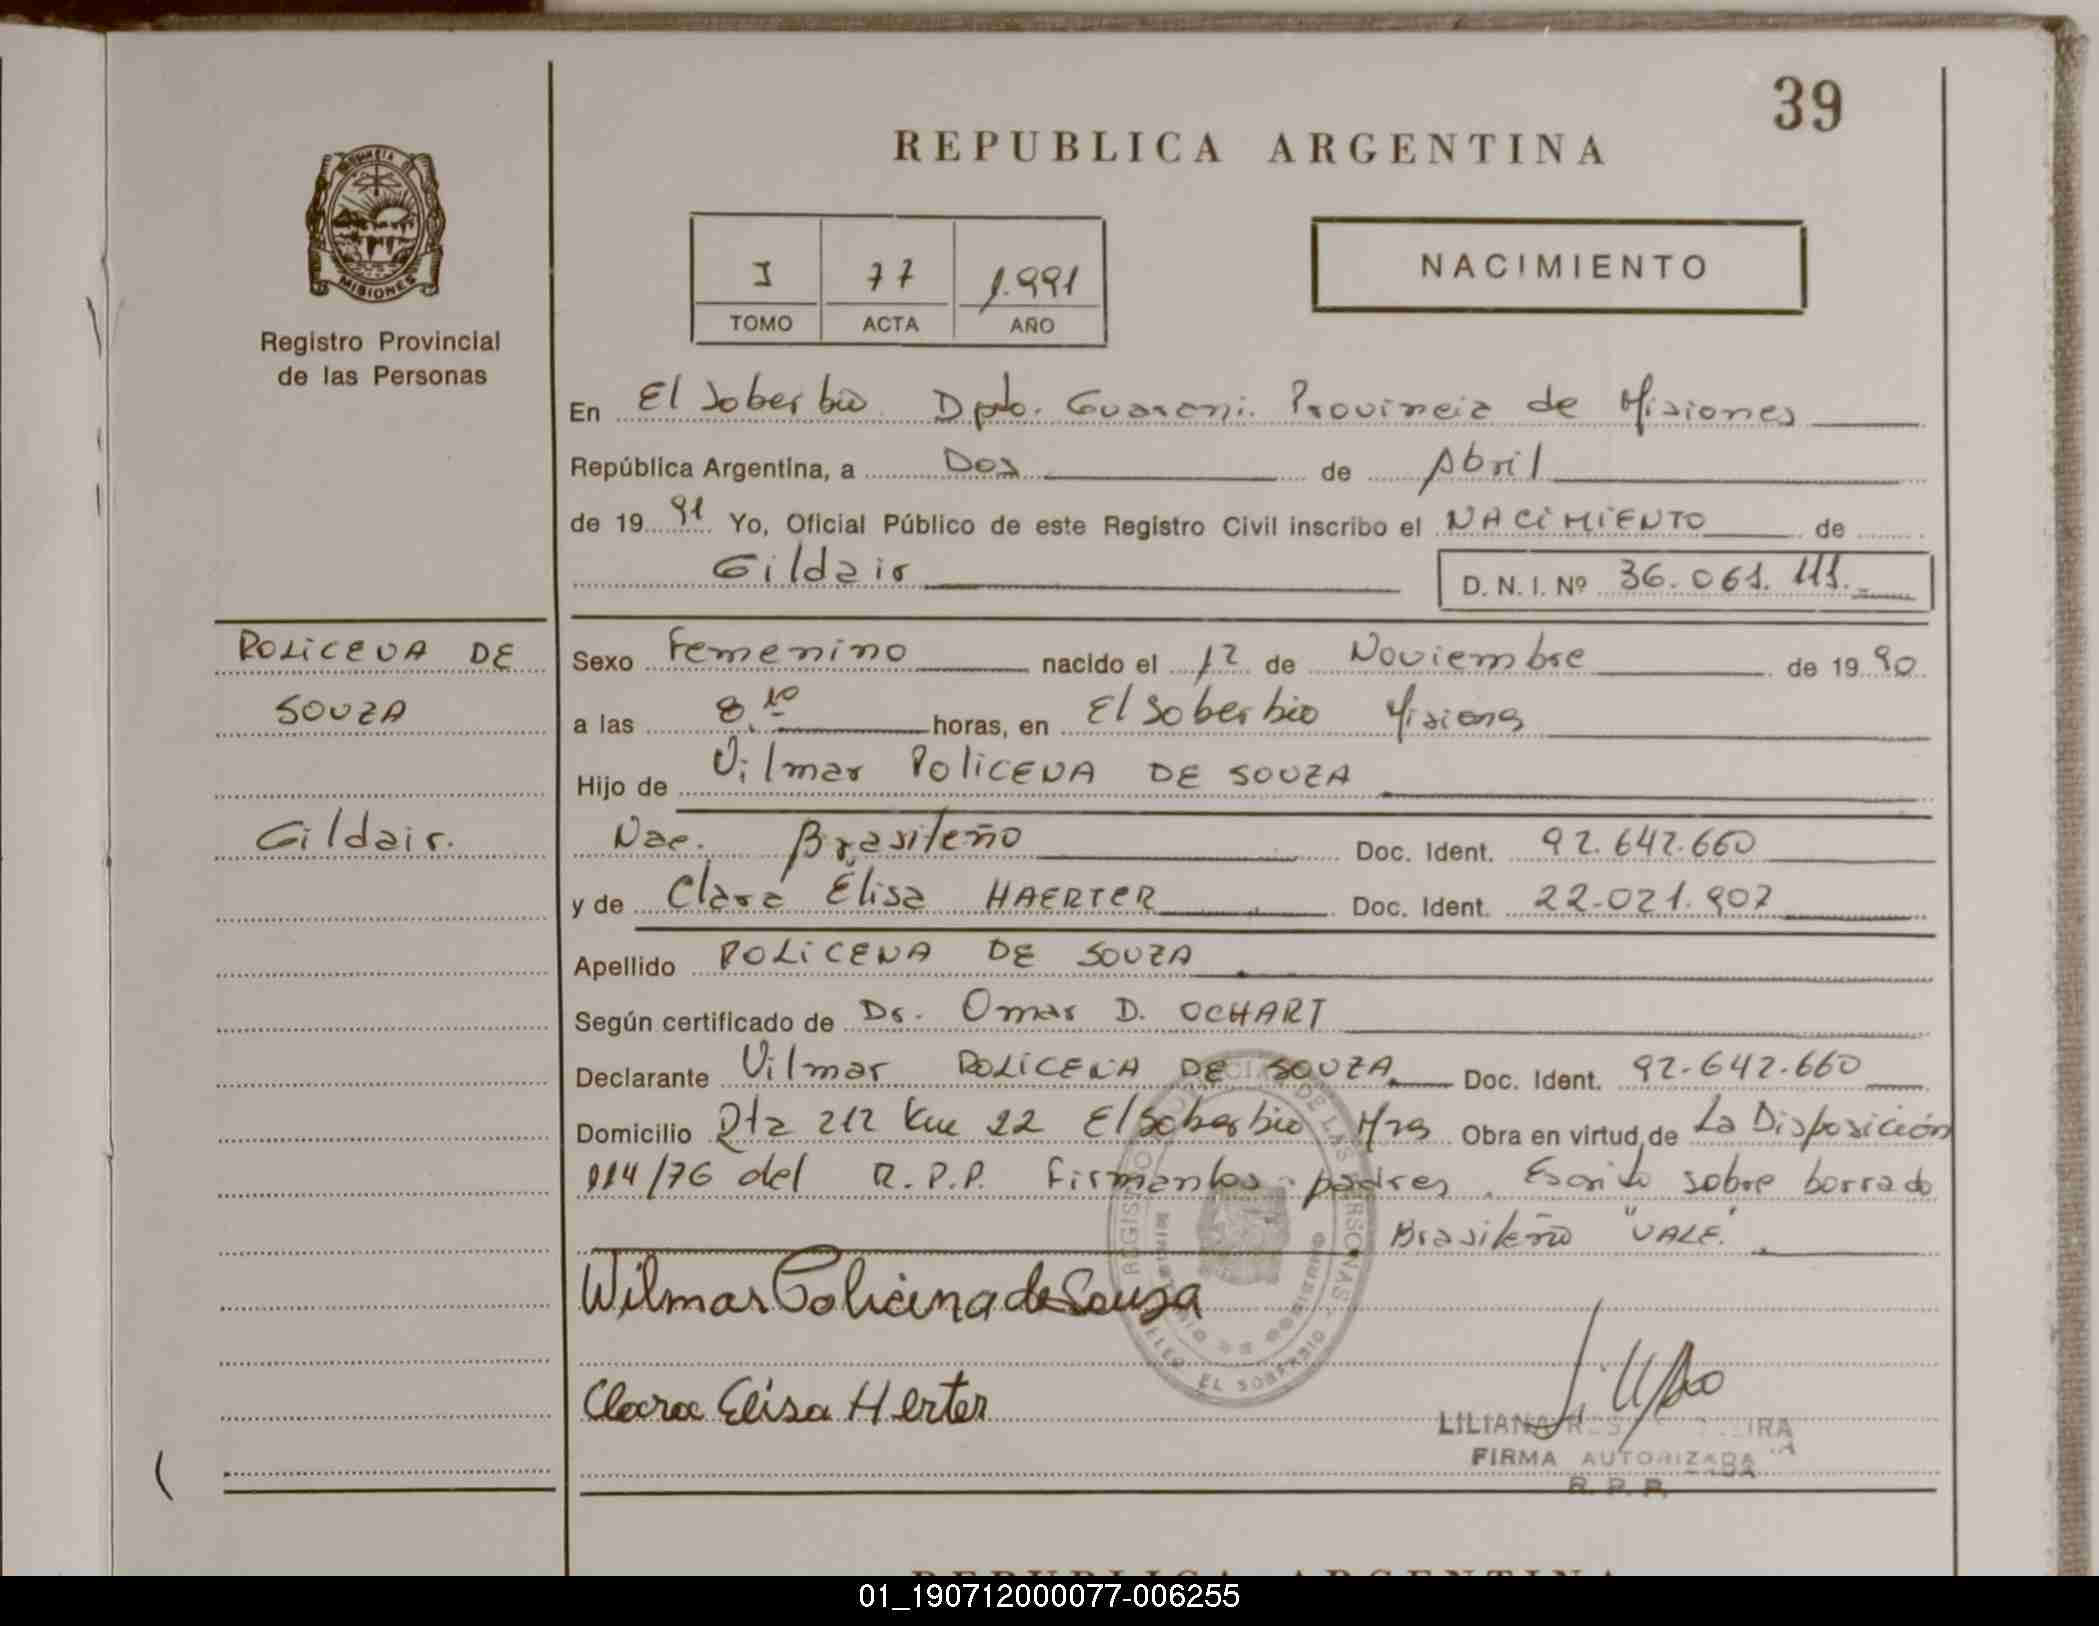 39
REPUBLICA ARGENTINA
MISIONES
Registro Provincial
de las Personas
I 77 1.991
TOMO ACTA AÑO
NACIMIENTO
En El Soberbio Dpto. Guarani. Provincia de Misiones
República Argentina, a Dos de Abril
de 19 91 Yo, Oficial Público de este Registro Civil inscribo el NACIMIENTO de
Gildair D. N. I. Nº 36.061.111.
POLICENA DE
SOUZA
Gildair.
Sexo Femenino nacido el 12 de Noviembre de 19 90
a las 8.10 horas, en El Soberbio Misiones
Hijo de Vilmar POLICENA DE SOUZA
Nac. Brasileño Doc. Ident. 92.642.660
y de Clara Elisa HAERTER Doc. Ident. 22.021.907
Apellido POLICENA DE SOUZA
Según certificado de Dr. Omar D. OCHART
Declarante Vilmar POLICENA DE SOUZA Doc. Ident. 92.642.660
Domicilio Rta 212 Km 22 El Soberbio Mnes Obra en virtud de La Disposición
114/76 del R.P.P. Firman los padres. Escrito sobre borrado
Brasileño "VALE".
Wilmar Policena de Souza
Clara Elisa Herter
EL SOBERBIO
LILIANA
FIRMA AUTORIZADA
R. P. P.
REPUBLICA ARGENTINA
01_190712000077-006255